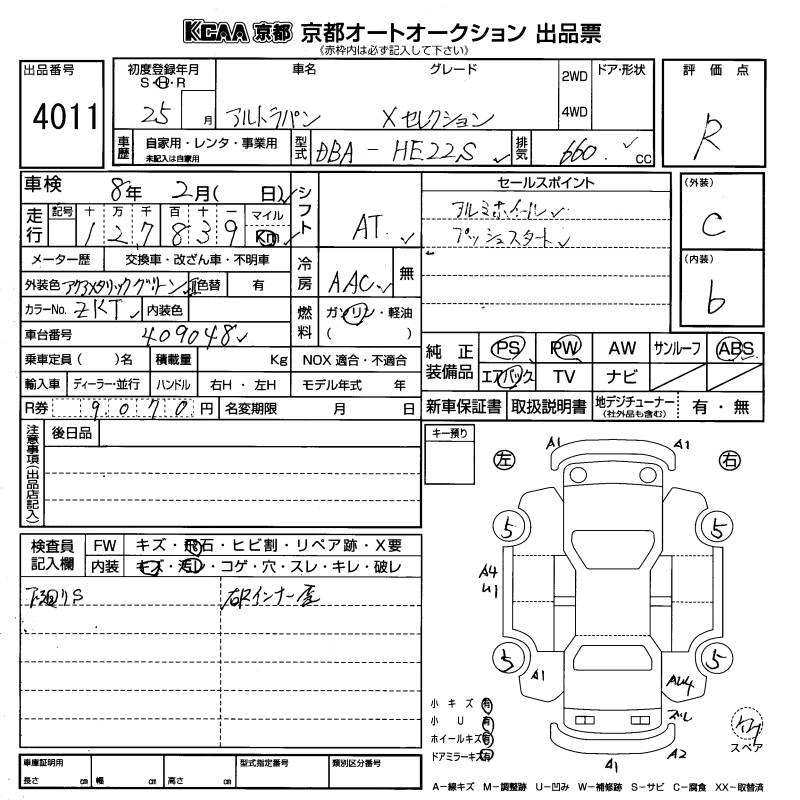 KCAA 京都 京都オートオークション 出品票
《赤枠内は必ず記入して下さい》
出品番号 初度登録年月 車名 グレード 2WD ドア・形状 評価点
S・H・R
4011 25 月 アルトラパン Xセレクション 4WD R
車歴 自家用・レンタ・事業用 型式 DBA-HE22S 排気 660 CC
未記入は自家用
車検 8年 2月( 日) シフト AT セールスポイント (外装)
走行 記号 十 万 千 百 十 一 マイル アルミホイール C
1 2 7 8 3 9 Km プッシュスタート
メーター歴 交換車・改ざん車・不明車 冷房 AAC 無 (内装)
外装色 アクアメタリックグリーン 色替 有 b
カラーNo. ZKT 内装色 燃料 ガソリン・軽油
車台番号 409048 ( )
乗車定員( )名 積載量 Kg NOX 適合・不適合 純正装備品 PS PW AW サンルーフ ABS
輸入車 ディーラー・並行 ハンドル 右H・左H モデル年式 年 エアバック TV ナビ
R券 9,070円 名変期限 月 日 新車保証書 取扱説明書 地デジチューナー 有・無
(社外品も含む)
注意事項(出品店記入) 後日品 キー預り
A1 A1
左 右
5 5
検査員記入欄 FW キズ・飛石・ヒビ割・リペア跡・X要
内装 キズ・汚レ・コゲ・穴・スレ・キレ・破レ
下回りS
A4
U1
5 5
A1 AU4
小キズ 有 ズレ
小U 有
ホイールキズ 有
ドアミラーキズ 有 A2 スペア
A1
A-線キズ M-調整跡 U-凹み W-補修跡 S-サビ C-腐食 XX-取替済
車庫証明用 型式指定番号 類別区分番号
長さ cm 幅 cm 高さ cm